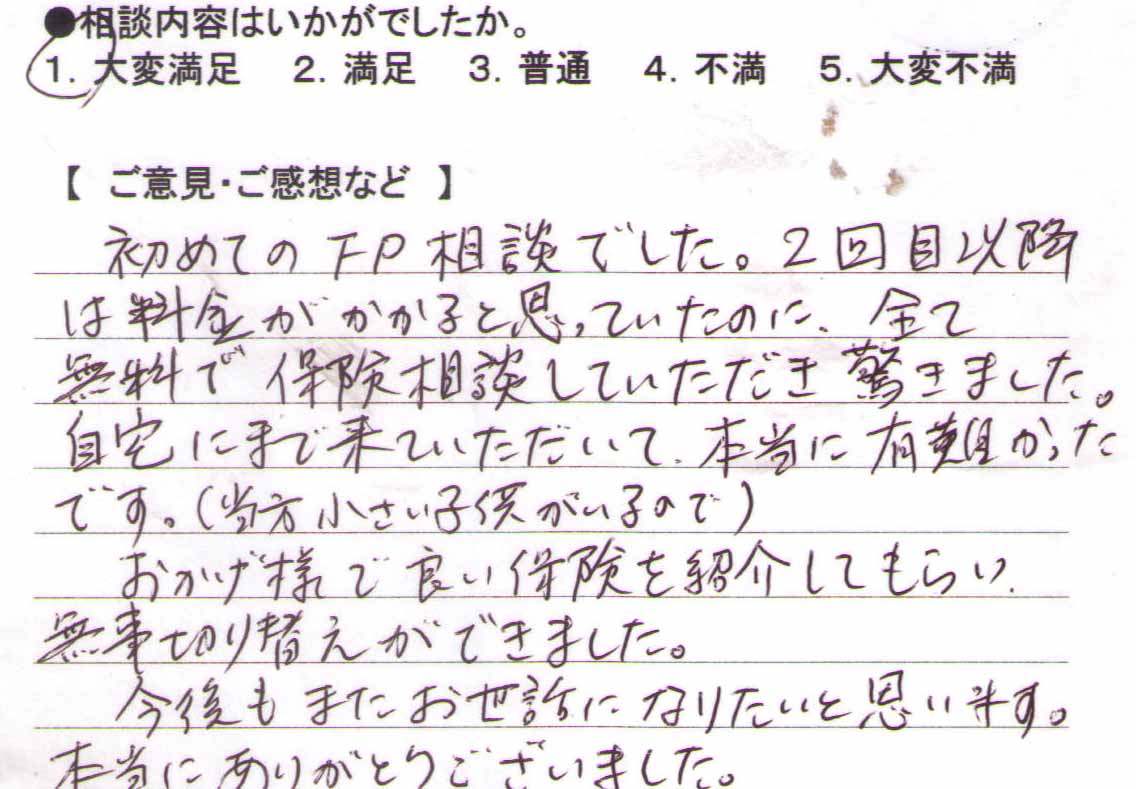 ●相談内容はいかがでしたか。
1. 大変満足 2. 満足 3. 普通 4. 不満 5. 大変不満
【 ご意見・ご感想など 】
初めてのFP相談でした。2回目以降
は料金がかかると思っていたのに、全て
無料で保険相談していただき驚きました。
自宅にまで来ていただいて、本当に有難かった
です。(当方小さい子供がいるので)
おかげ様で良い保険を紹介してもらい、
無事切り替えができました。
今後もまたお世話になりたいと思います。
本当にありがとうございました。